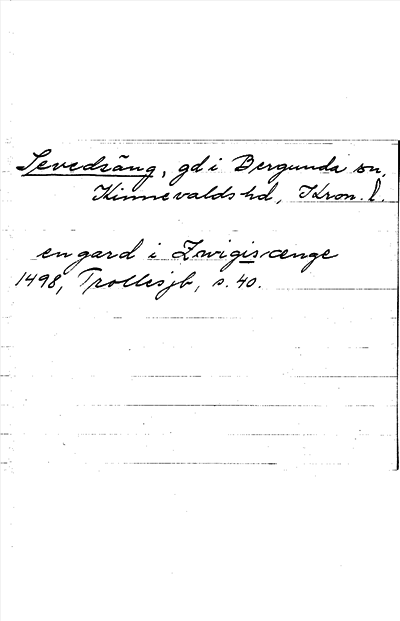 Sevedsäng, gd i Bergunda sn,
Kinnevalds hd, Kron. l.
en gard i Zwigisænge
1498, Trollesjb, s. 40.